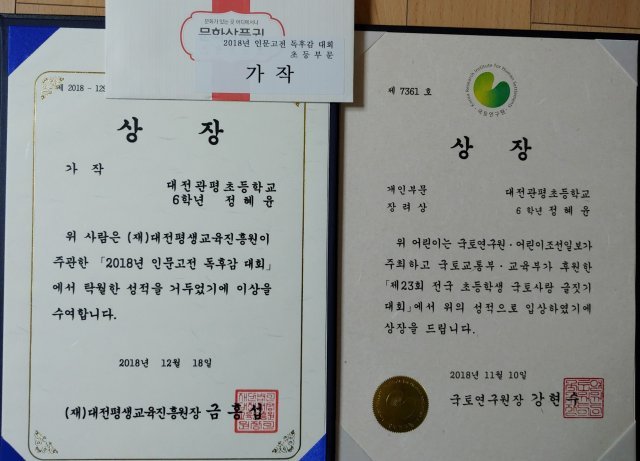 문화가 있는 곳 어디에서나
문화상품권
2018년 인문고전 독후감 대회
초등부문
가작
제 2018 - 129
상장
가작
대전관평초등학교
6학년 정혜윤
위 사람은 (재)대전평생교육진흥원이
주관한 「2018년 인문고전 독후감 대회」
에서 탁월한 성적을 거두었기에 이상을
수여합니다.
2018년 12월 18일
(재)대전평생교육진흥원장 금홍섭
Korea Research Institute for Human Settlements
국토연구원
제 7361 호
상장
개인부문 대전관평초등학교
장려상 6학년 정혜윤
위 어린이는 국토연구원·어린이조선일보가
주최하고 국토교통부·교육부가 후원한
「제23회 전국 초등학생 국토사랑 글짓기
대회」에서 위의 성적으로 입상하였기에
상장을 드립니다.
2018년 11월 10일
국토연구원장 강현수